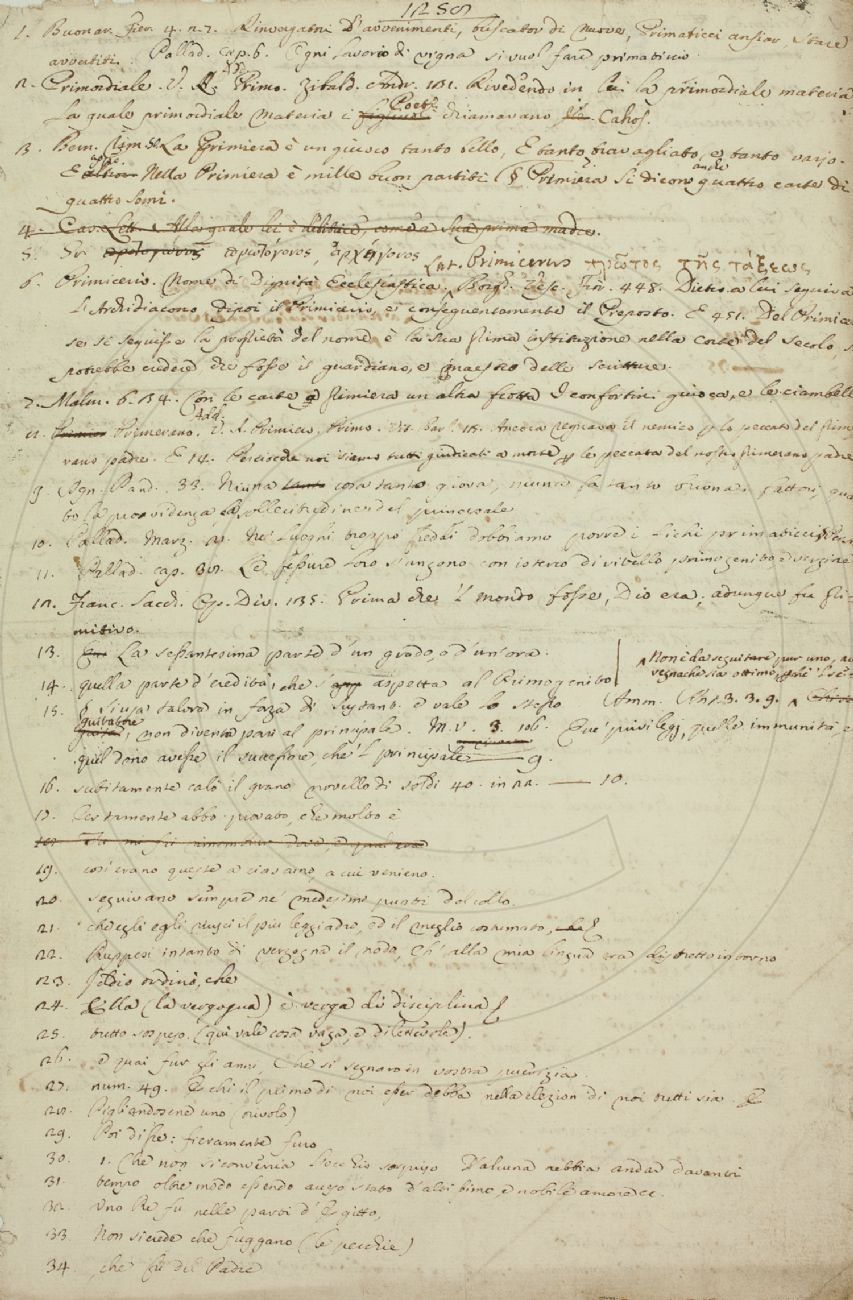 1258
1. Buonar. Fier. 4. 2. 7. Rinvergatori D'avvenimenti, buscator di Nuove, Primaticci ansiar, stare
avvertiti. Pallad. Cap. 6. Ogni lavorio di vigna si vuol fare primaticcio
2. Primordiale. V. A. Primo. Zibald. Andr. 181. Rivedendo in lei la primordiale materia
La quale primordiale Materia i Poeti chiamavano Caos.
3. Bern. La Primiera è un giuoco tanto bello, E tanto travagliato, e tanto vario.
E Nella Primiera è mille buon partiti Primiera si dicono anche quattro carte di
quattro semi.
4. Cas. Lett. Alla quale lei è come a sua prima madre.
5. πρωτόγονος, ἀρχέγονος
Lat. Primicerius πρῶτος τῆς τάξεως
6. Primicerio. Nome di Dignità Ecclesiastica. Borgh. Vesc. Fior. 448. Dietro a lui seguiva
L'Archidiacono, dipoi il Primicerio, e conseguentemente il Preposto. E 451. Del Primice
se si seguisse la proprietà del nome, è la sua prima instituzione nella corte del Secolo, si
potrebbe credere che fosse il guardiano, e maestro delle scritture.
7. Malm. 6. 134. Con le carte a primiera un'altra frotta I confortini giuoca, e le ciambell
Add.
Primerano. V. A. Primiero, Primo. regnava il nemico lo peccato del prim
rano padre. E 14. Perciocchè noi siamo tutti giudicati a morte le peccata del nostro primerano padre
9. Agn. Pand. 33. Niuna cosa tanto giova, niuna fa tanto buona i fattori qua
to la provvidenza, e sollecitudine del principale
10. Pallad. Marz. Ne' luoghi troppo freddi dobbiamo porre i fichi primaticci
11. Pallad. cap. Le fessure loro s'ungono con isterco di vitello primogenito
12. Franc. Sacch. Op. Div. 135. Prima che 'l mondo fosse, Dio era, adunque fu pri-
mitivo.
13. La sessantesima parte d'un grado, o d'un'ora.
Non è da seguitare pur uno,
14. quella parte d'eredità, che s'aspetta al Primogenito
15. si usa talora in forza di Sustant. e vale lo stesso Amm. Ant. 3. 3. 9.
non diventa pari al principale. M. V. 3. 106. Que' privilegi, quelle immunità,
quel dono avesse il successore, che 'l principale 9.
16. subitamente calò il grano novello di soldi 40. in 22. 10.
17. Certamente abbo provato, che molto è
19. così erano queste a ciascuno, a cui venieno.
20. seguivano sempre ne' medesimo punti del collo.
21. che egli egli riuscì il più leggiadro, ed il meglio costumato,
22. Ruppesi intanto di vergogna il nodo, Ch'alla mia lingua era distretto intorno
23. Iddio ordinò, che
24. Ella (la vergogna) è verga di disciplina
25. tutto sospeso. (quì vale cosa vaga, e dilettevole).
26. e quai fur gli anni, Che si segnaro in vostra puerizia.
27. num. 49. E chi il primo di noi esser debba nella elezion di noi tutti sia. E
28. Pigliandosene uno (rivolo)
29. Poi disse: fieramente furo
30. 1. Che non si converria l'occhio sorpriso D'alcuna nebbia andar davanti
31. tempo oltre modo essendo acceso stato d'altissimo, e nobile amore ec.
32. Uno Re fu nelle parti d'Egitto,
33. Non si crede che fuggano (le pecchie)
34. che fu del Padre